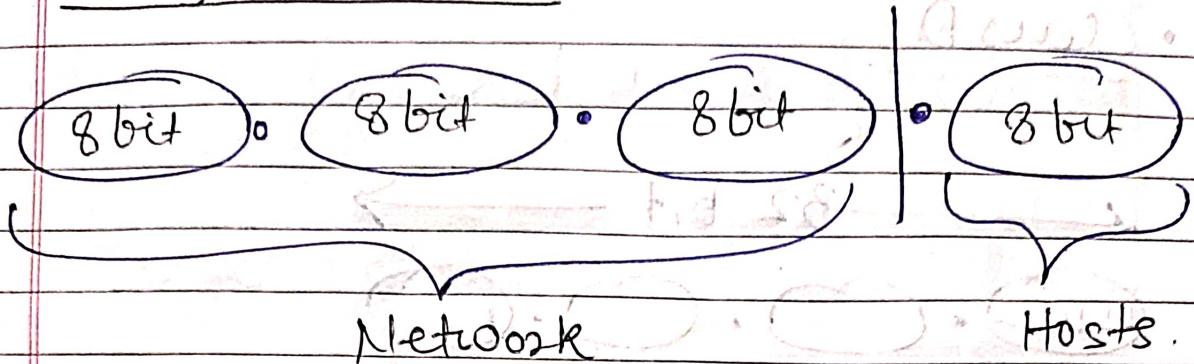 8 bit . 8 bit . 8 bit . 8 bit
Network Hosts.